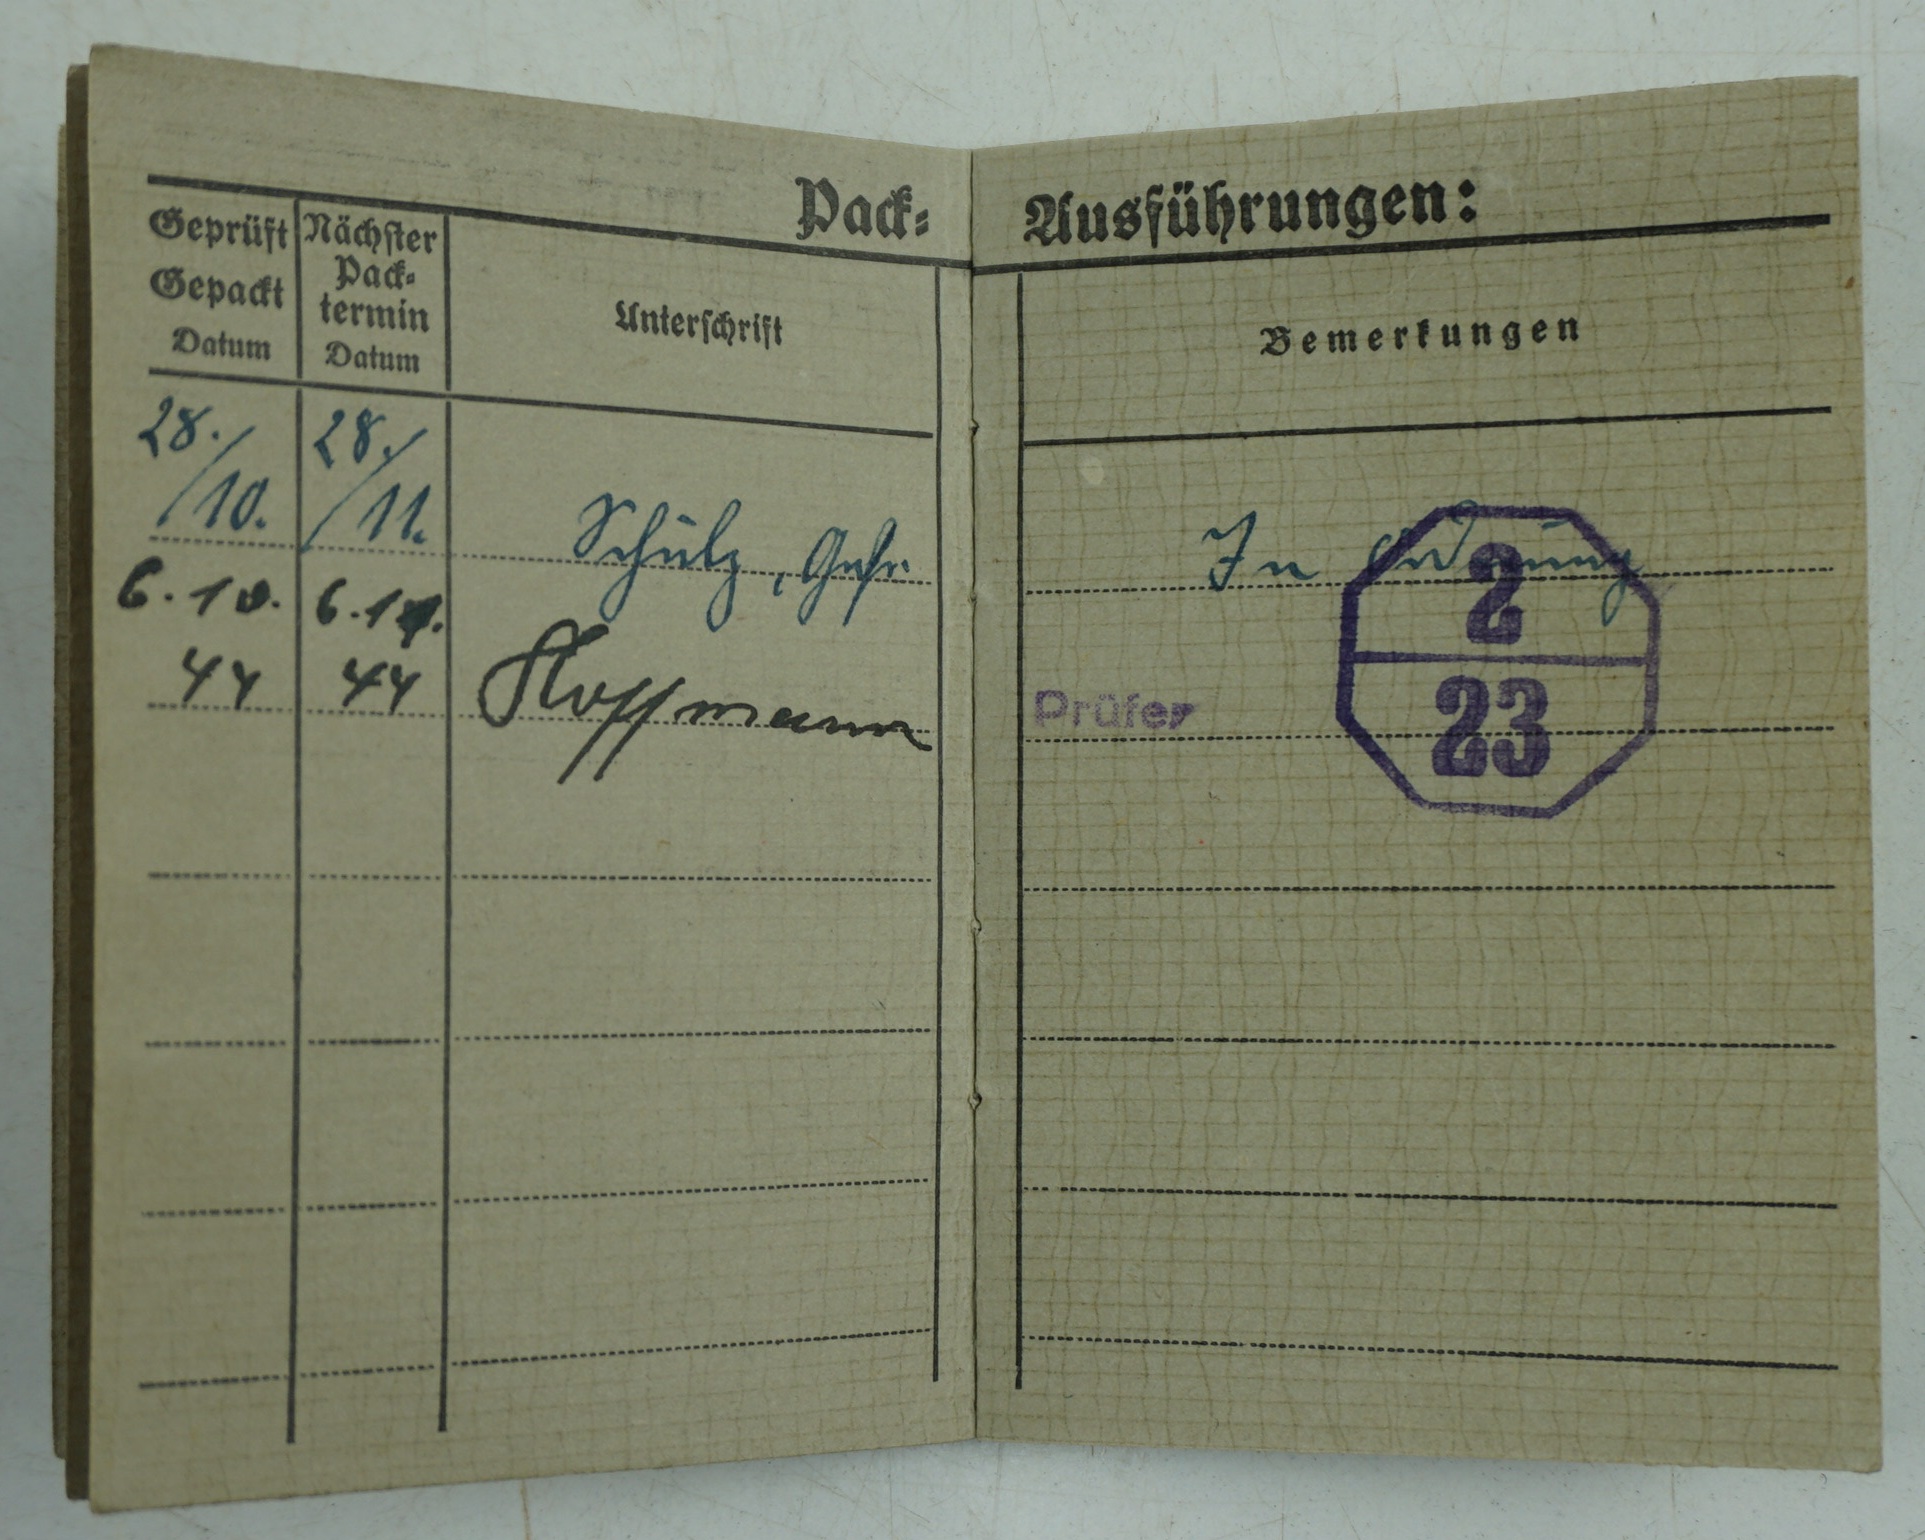 Pack- Ausführungen:
Geprüft
Gepackt
Datum
Nächster
Pack-
termin
Datum
Unterschrift
Bemerkungen
28./10.
28./11.
Schulz, Gefr.
In Ordnung
6.10.
44
6.11.
44
Hoffmann
Prüfer
2
23